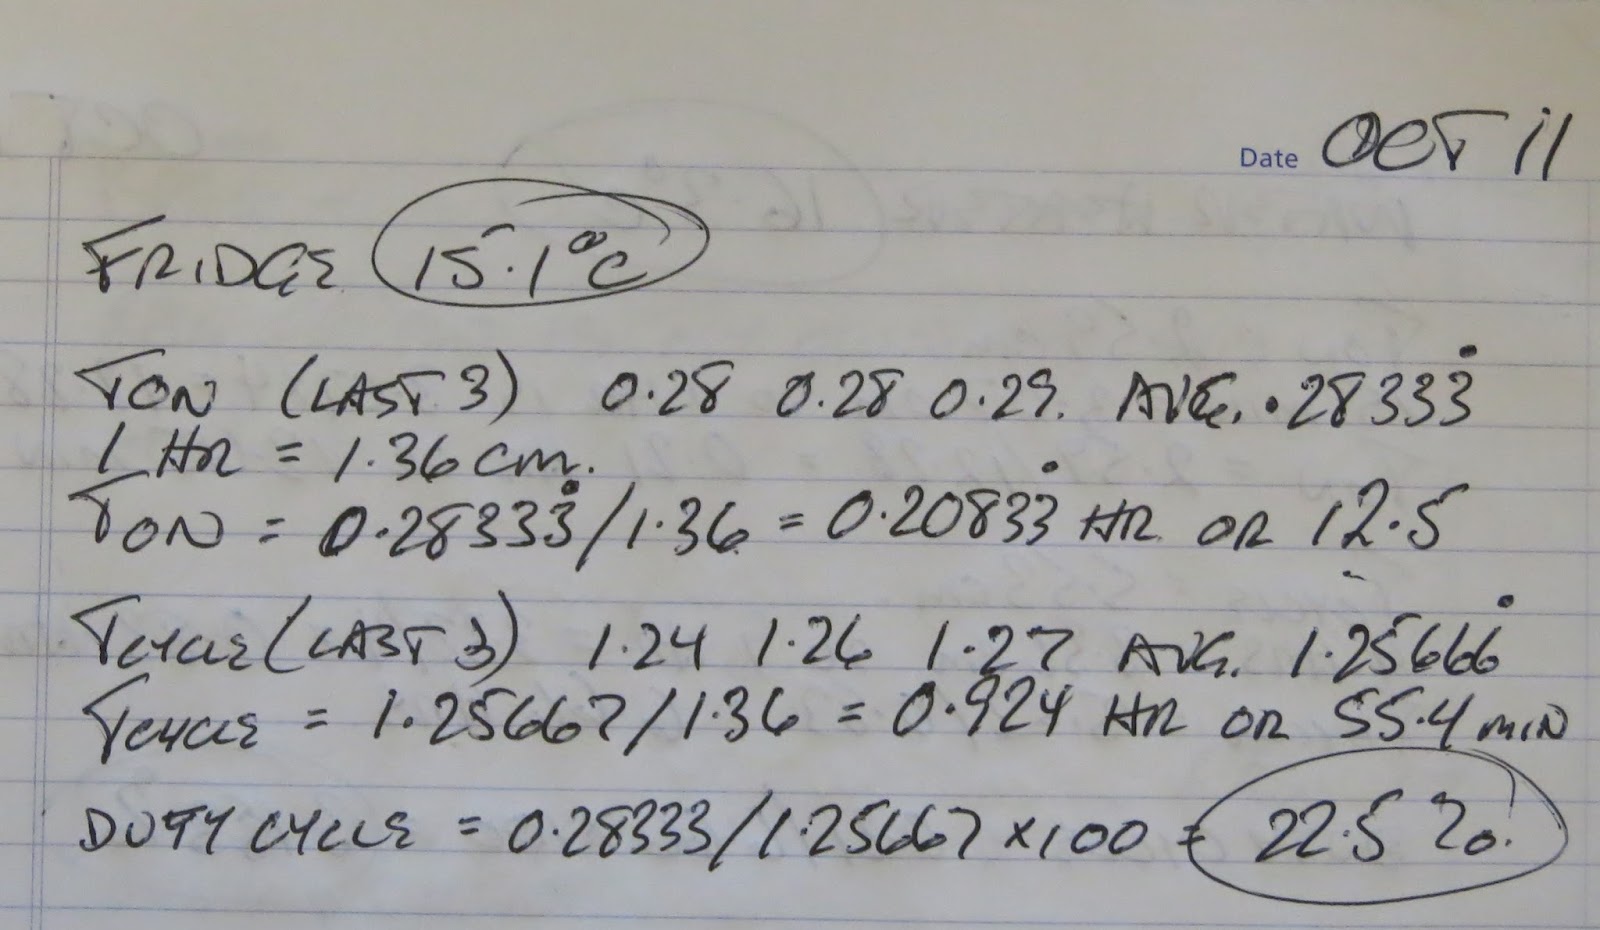 Date OCT 11
FRIDGE 15.1°C
TON (LAST 3) 0.28 0.28 0.29. AVG. .28333̇
1 HR = 1.36 cm.
TON = 0.28333̇/1.36 = 0.20833̇ HR OR 12.5
TCYCLE (LAST 3) 1.24 1.26 1.27 AVG. 1.25666̇
TCYCLE = 1.25667/1.36 = 0.924 HR OR 55.4 MIN
DUTY CYCLE = 0.28333/1.25667 x 100 = 22.5 %.